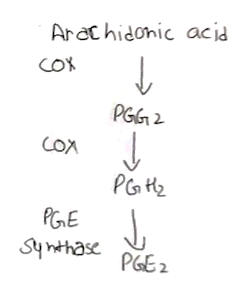 Arachidonic acid
COX
PGG2
COX
PGH2
PGE
Synthase
PGE2